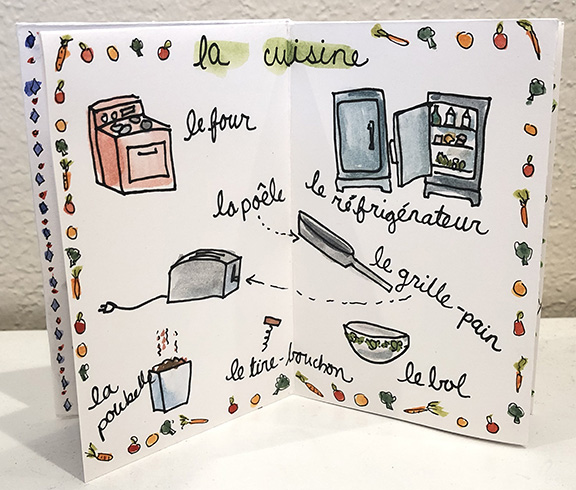 la cuisine
le four
le réfrigérateur
la poêle
le grille-pain
la
poubelle
le tire-bouchon
le bol